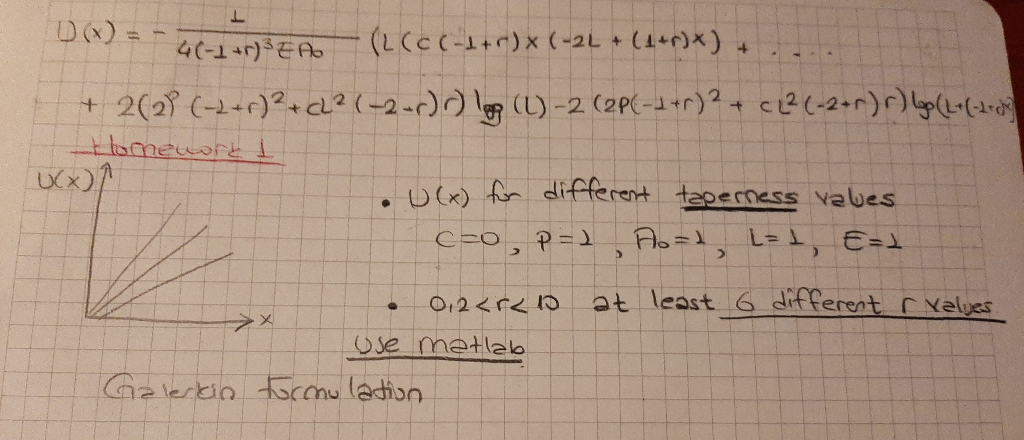 U(x) = - 1 / 4(-1+r)³EA₀ (L(c(-1+r)x(-2L + (1+r)x) + ....
+ 2(2P(-1+r)²+cL²(-2-r)r) log(L) -2(2P(-1+r)² + cL²(-2+r)r) log(L+(-1+r)x)
Homework 1
U(x)
x
• U(x) for different taperness values
C=0, P=1, A₀=1, L=1, E=1
• 0,2<r<10 at least 6 different r values
Use matlab
Galerkin formulation